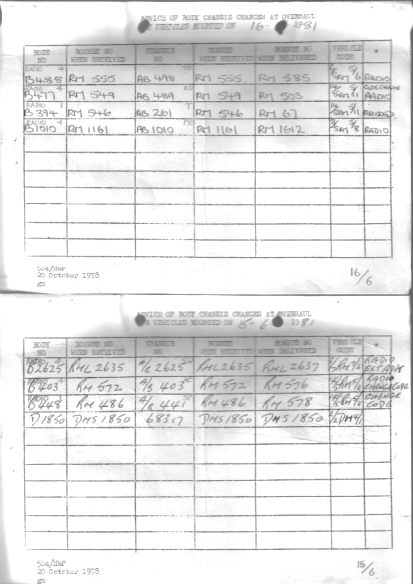 ADVICE OF BODY CHASSIS CHANGES AT OVERHAUL
VEHICLES MOUNTED ON 16- 1981
BODY NO BONNET NO WHEN RECEIVED CHASSIS NO BONNET WHEN RECEIVED BONNET WHEN DELIVERED VEHICLE CODE
RADIO 4
B488 RM 555 AB 498 RM 555 RM 585 RADIO
RADIO 4
B477 RM 549 AB 489 RM 549 RM 503 CODE CHANGE RADIO
RADIO 1
B394 RM 546 AB 261 RM 546 RM 67
RADIO 4
B1010 RM 1161 AB 1010 RM 1161 RM 1612 RADIO
504/HMF
20 October 1978
16/6
ADVICE OF BODY CHASSIS CHANGES AT OVERHAUL
VEHICLES MOUNTED ON 15-6 1981
BODY NO BONNET NO WHEN RECEIVED CHASSIS NO BONNET WHEN RECEIVED BONNET WHEN DELIVERED VEHICLE CODE
B2625 RML 2635 A/B 2625 RML 2635 RML 2637 RADIO
B403 RM 572 A/B 403 RM 572 RM 576 RADIO CHANGE CODE
B448 RM 486 A/B 441 RM 486 RM 578 CHANGE CODE
D1850 DMS 1850 68317 DMS 1850 DMS 1850
504/HMF
20 October 1978
15/6